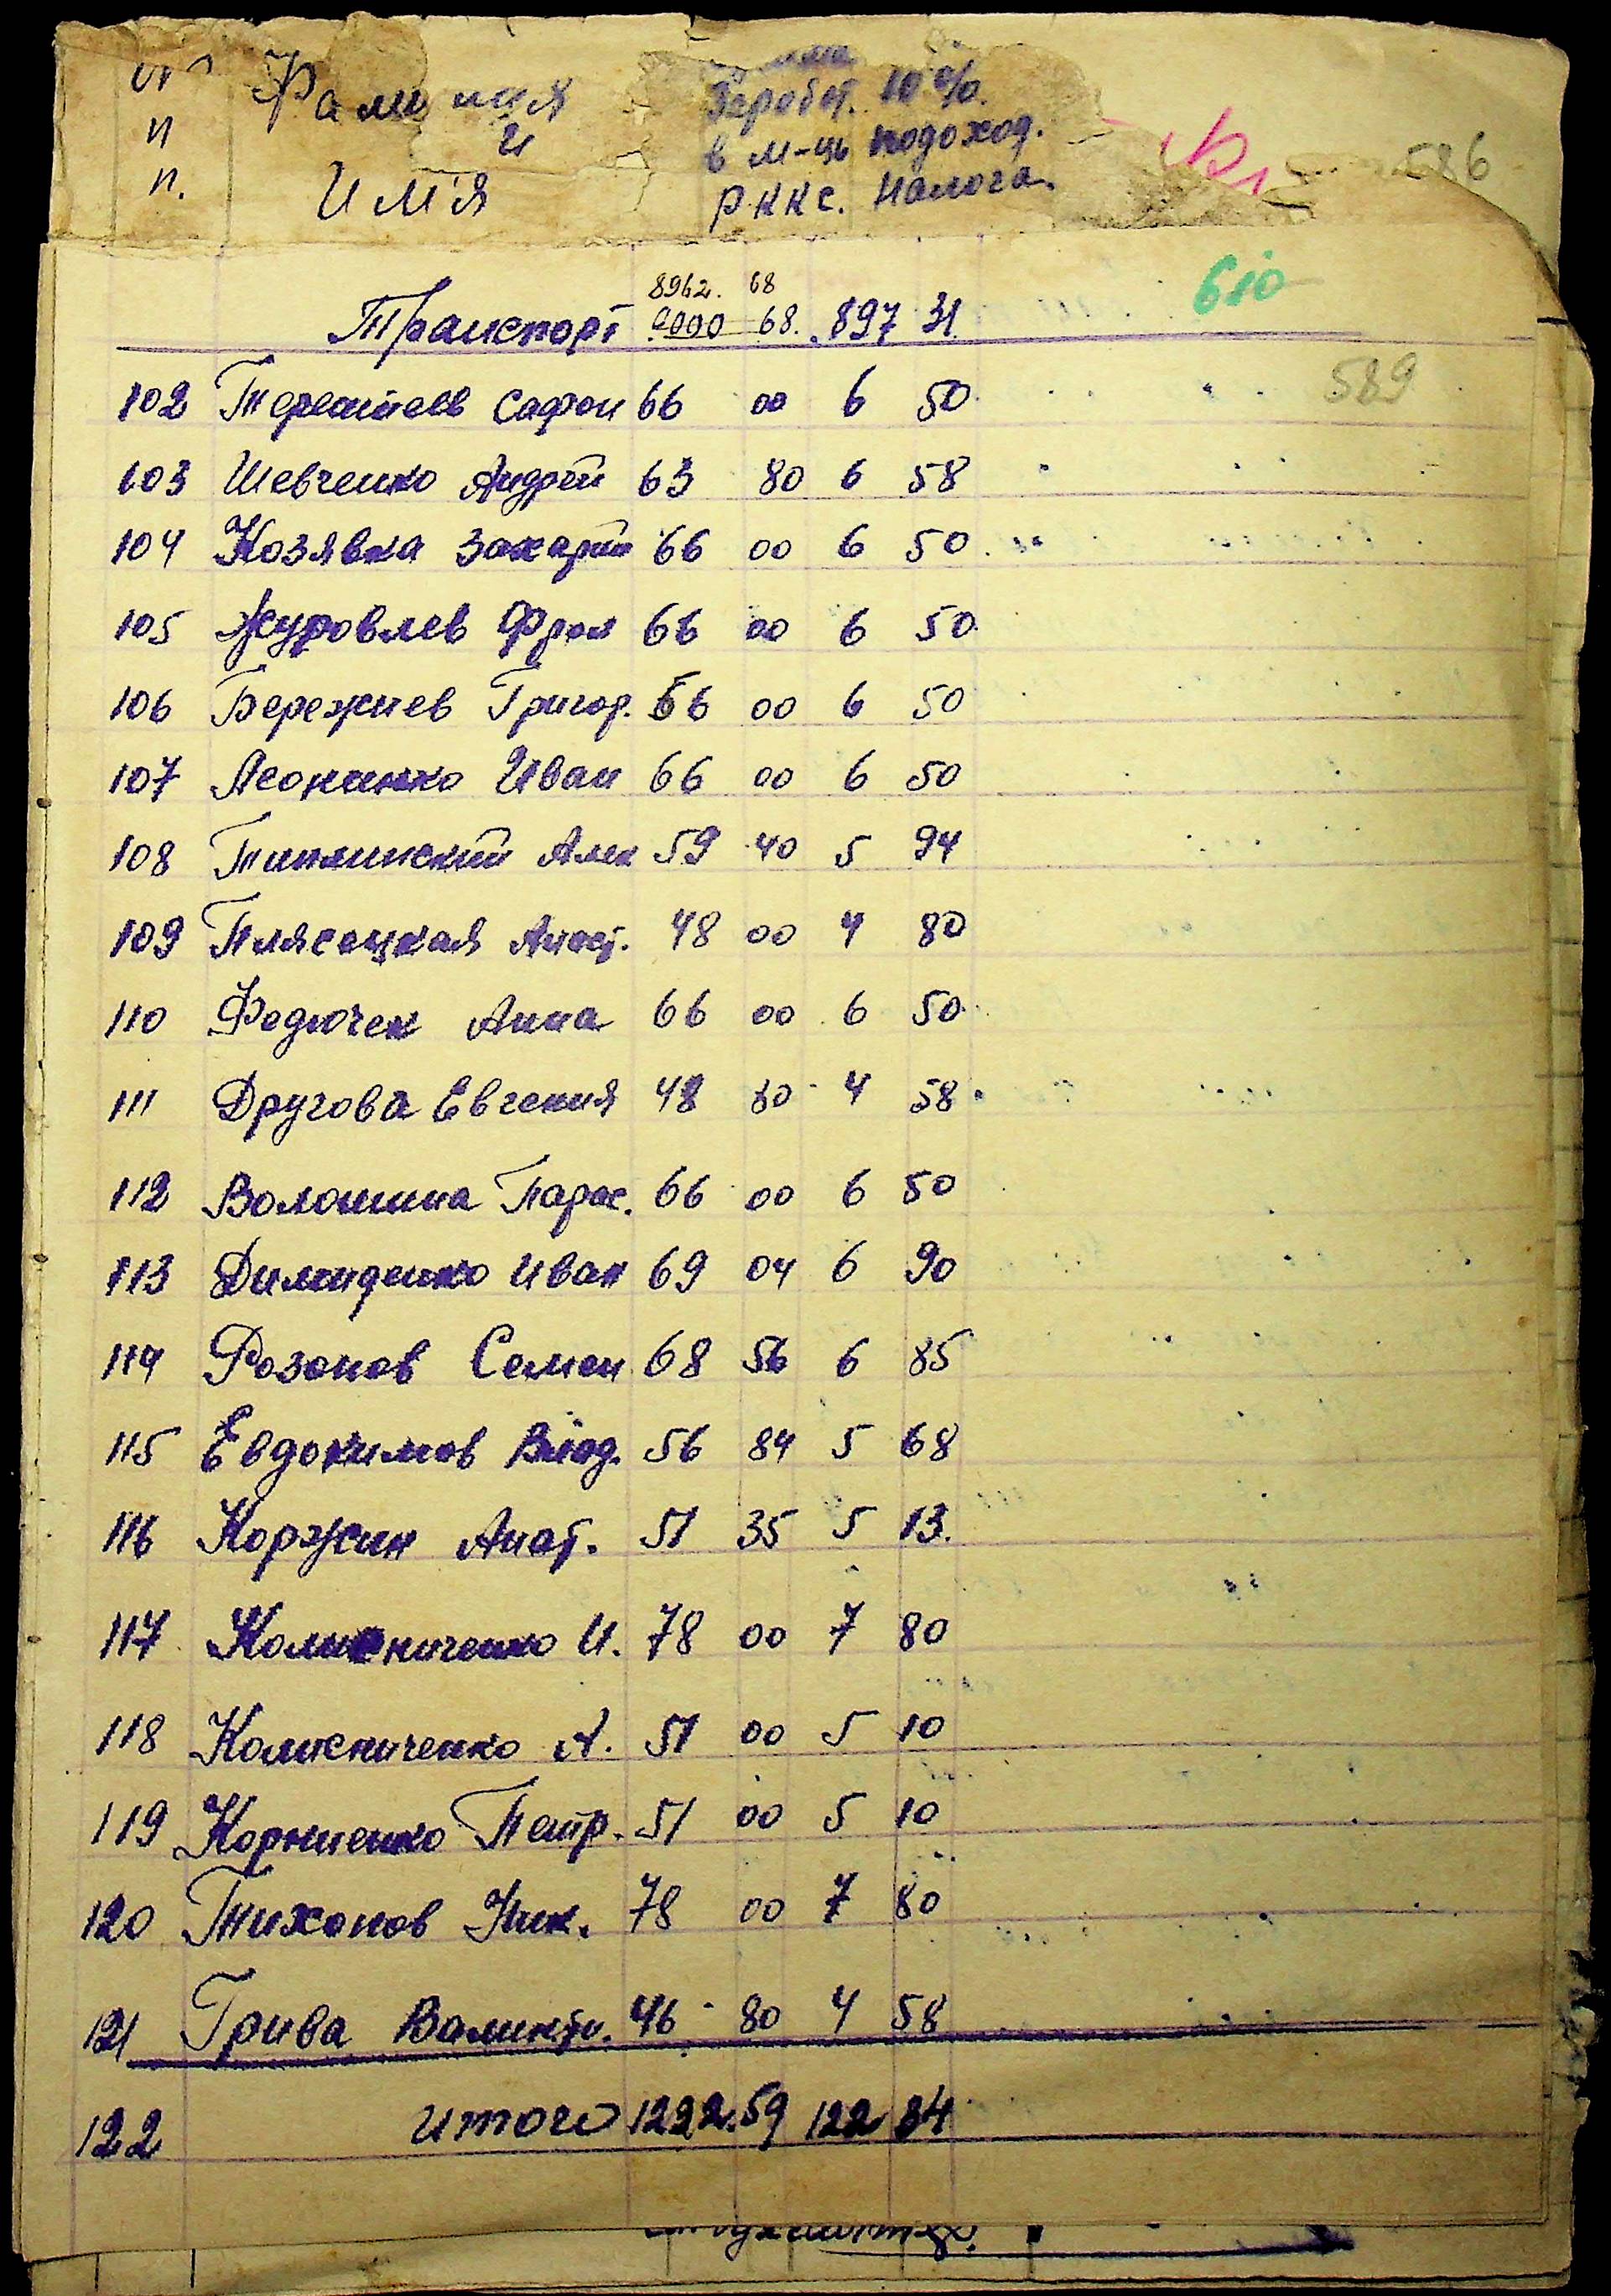 № Фамилия Заработ. 10%
п и в м-ць подоход.
п. Имя р. ккс. Налога.
586
8962. 68
Транспорт 68. 897 31.
610
589
102 Сафон 66 00 6 50
103 Шевченко Андрей 63 80 6 58
104 Козявка Захарий 66 00 6 50
105 Журовлев Фрол 66 00 6 50
106 Бережнев Григор. 66 00 6 50
107 Иван 66 00 6 50
108 Алек 59 40 5 94
109 Плясецкая Анаст. 48 00 4 80
110 Федючек Анна 66 00 6 50
111 Другова Евгения 48 4 58
112 Волошина Парас. 66 00 6 50
113 Димиденко Иван 69 04 6 90
114 Розонов Семен 68 56 6 85
115 Евдокимов Влад. 56 84 5 68
116 Коржин Анат. 51 35 5 13.
117 И. 78 00 7 80
118 Колисниченко А. 51 00 5 10
119 Корниенко Петр. 51 00 5 10
120 Тихонов Ник. 78 00 7 80
121 Грива 46 80 4 58
122 Итого 1222.59 122 84